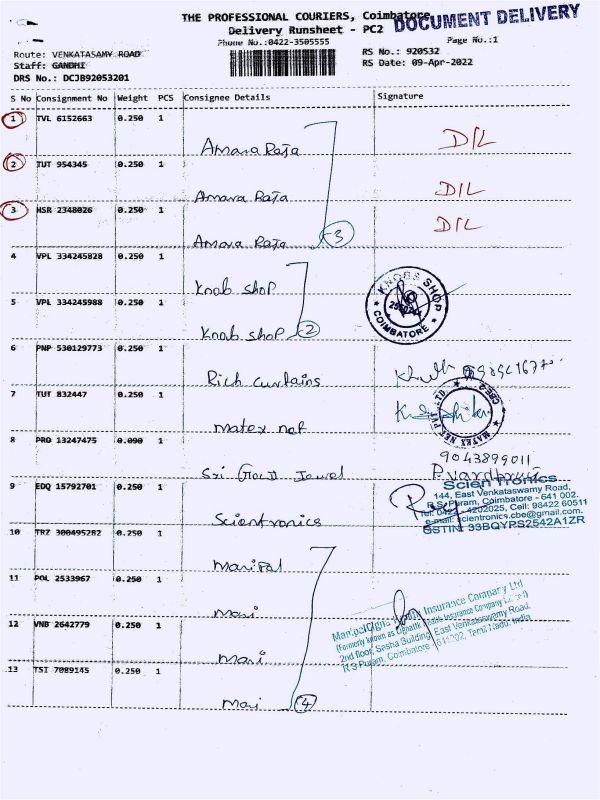 THE PROFESSIONAL COURIERS, Coimbatore
DOCUMENT DELIVERY
Delivery Runsheet - PC2
Phone No.:0422-3505555
Page No.:1
Route: VENKATASAMY ROAD
RS No.: 920532
Staff: GANDHI
RS Date: 09-Apr-2022
DRS No.: DCJB92053201
S No Consignment No Weight PCS Consignee Details Signature
1 TVL 6152663 0.250 1
Amara Raja D/L
2 TUT 954345 0.250 1
Amara Raja D/L
3 HSR 2348026 0.250 1
Amara Raja 3 D/L
4 VPL 334245828 0.250 1
Knob shop
KNOBS SHOP
COIMBATORE
5 VPL 334245988 0.250 1
Knob shop 2
6 PNP 530129773 0.250 1
Rich curtains
7 TUT 832447 0.250 1
Matex net
MATEX NET PVT LTD
CBE-2
8 PRO 13247475 0.090 1
9043899011
Sri Jewel
9 EDQ 15792701 0.250 1
Scientronics
Scien Tronics
144, East Venkataswamy Road,
R.S. Puram, Coimbatore - 641 002.
Tel: 0422 - 4202025, Cell: 98422 60511
e-mail: scientronics.cbe@gmail.com.
GSTIN: 33BQYPS2542A1ZR
10 TRZ 300495282 0.250 1
Manipal
11 POL 2533967 0.250 1
Mani
12 VNB 2642779 0.250 1
Mani
Insurance Company Ltd
(Formerly known as Health Insurance Company Limited)
2nd floor, Sesha Building, East Venkataswamy Road,
R S Puram, Coimbatore - Tamil Nadu, India
13 TSI 7089145 0.250 1
Mani 4